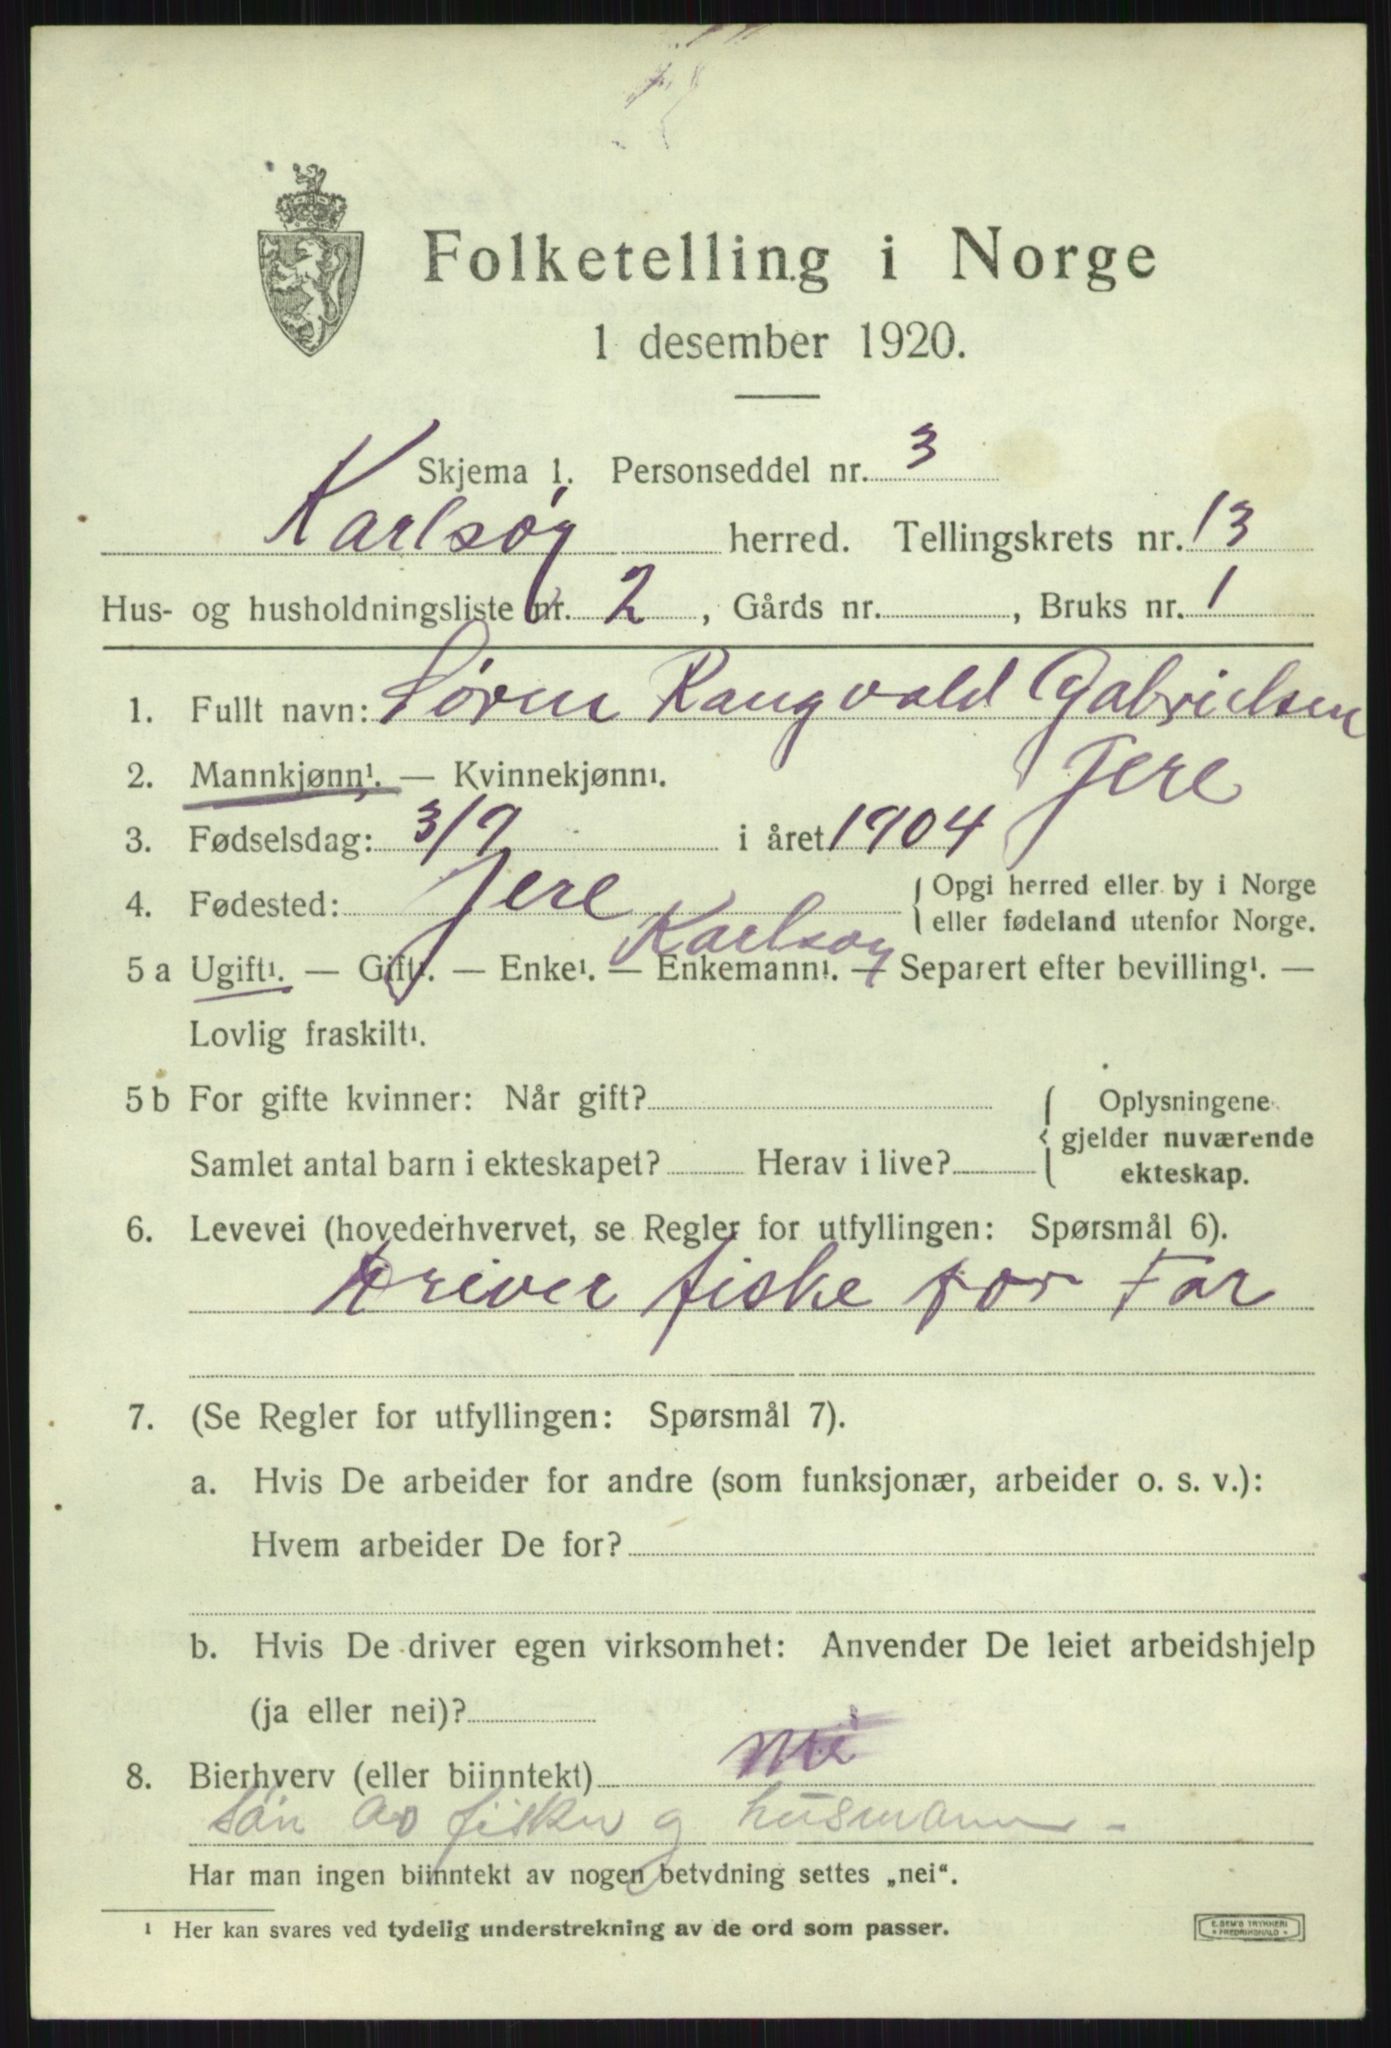 Folketelling i Norge
1 desember 1920.
Skjema 1. Personseddel nr. 3
Karlsøy herred. Tellingskrets nr. 13
Hus- og husholdningsliste nr. 2, Gårds nr. , Bruks nr. 1
1. Fullt navn: Søren Rangvald Gabrielsen
Jere
2. Mannkjønn¹. — Kvinnekjønn¹.
3. Fødselsdag: 3/9 i året 1904
4. Fødested: Jere { Opgi herred eller by i Norge
eller fødeland utenfor Norge.
Karlsøy
5 a Ugift¹. — Gift¹. — Enke¹. — Enkemann¹. — Separert efter bevilling¹. —
Lovlig fraskilt¹.
5 b For gifte kvinner: Når gift? { Oplysningene
gjelder nuværende
Samlet antal barn i ekteskapet? Herav i live?
ekteskap.
6. Levevei (hovederhvervet, se Regler for utfyllingen: Spørsmål 6).
Driver fiske for Far
7. (Se Regler for utfyllingen: Spørsmål 7).
a. Hvis De arbeider for andre (som funksjonær, arbeider o. s. v.):
Hvem arbeider De for?
b. Hvis De driver egen virksomhet: Anvender De leiet arbeidshjelp
(ja eller nei)?
8. Bierhverv (eller biinntekt) nei
Søn av fisker og husmann -
Har man ingen biinntekt av nogen betydning settes „nei“.
¹ Her kan svares ved tydelig understrekning av de ord som passer.
E. SEM'S TRYKKERI
FREDRIKSHALD